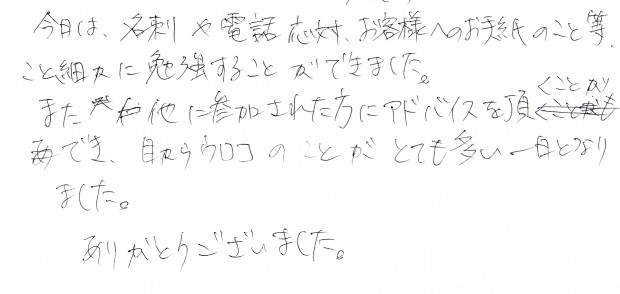 今日は、名刺や電話応対、お客様へのお手紙のこと等、
こと細カに勉強することができました。
また他に参加された方にアドバイスを頂くことが
でき、目からウロコのことがとても多い一日となり
ました。
ありがとうございました。